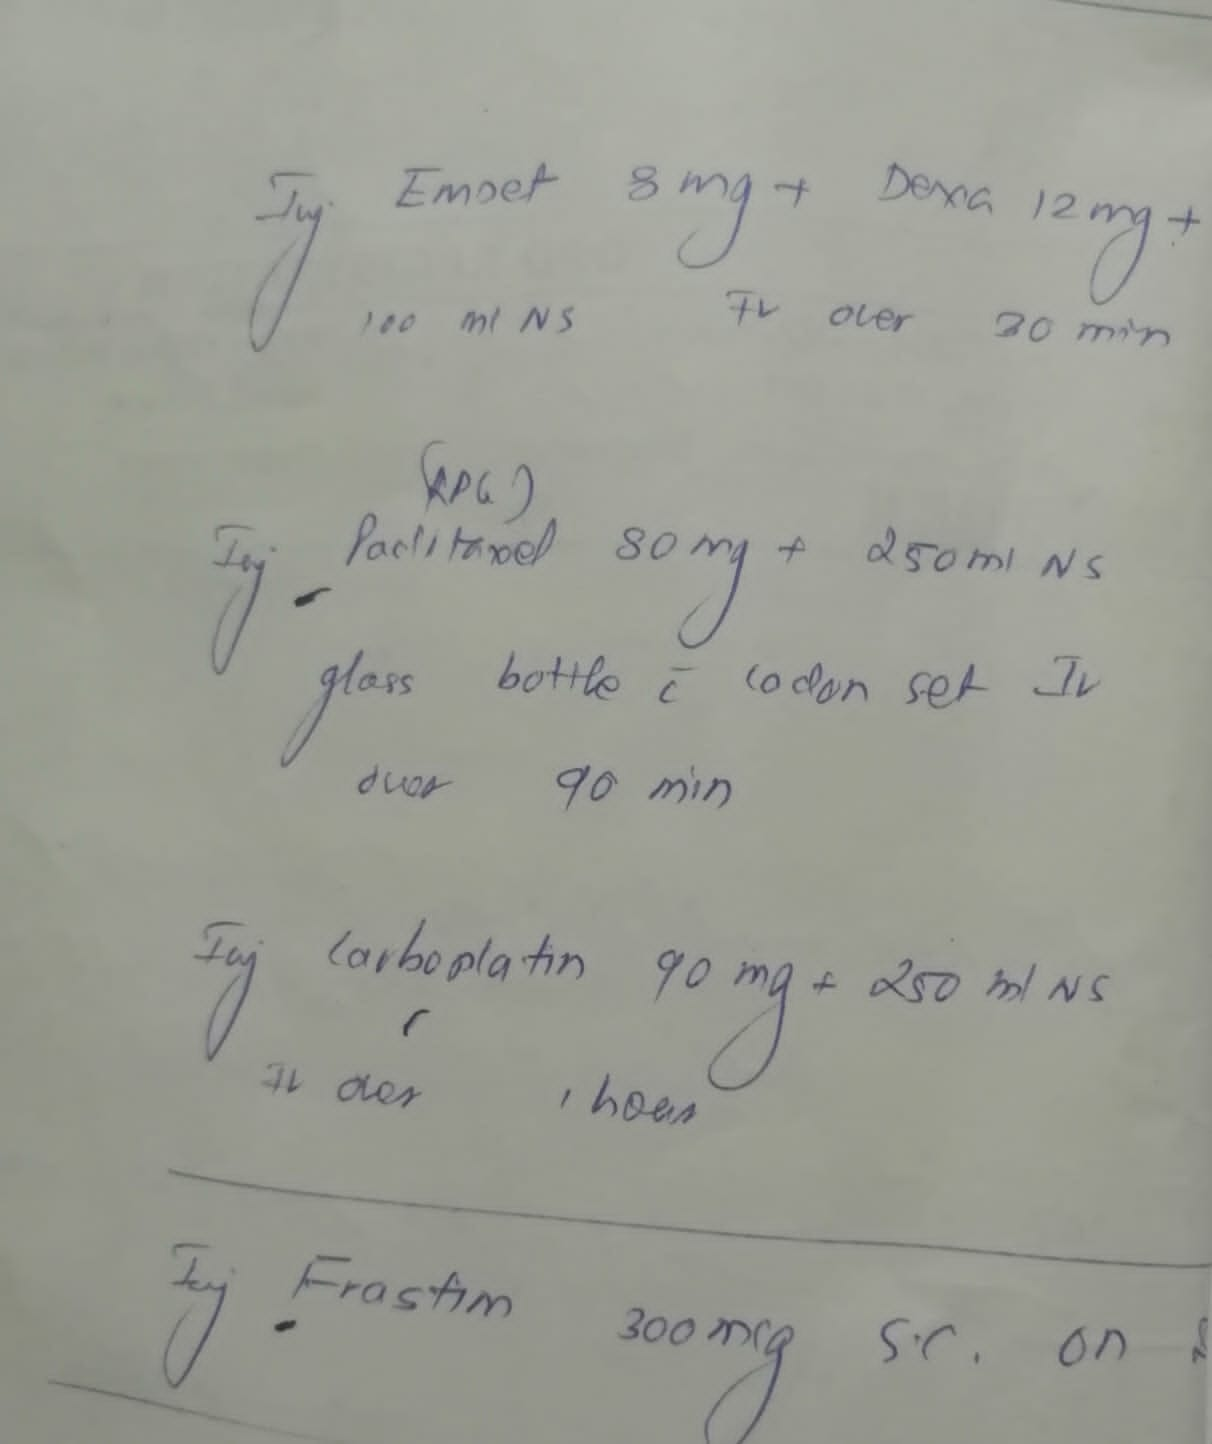 Inj Emset 8 mg + Dexa 12 mg +
100 ml NS IV over 30 min
Inj Paclitaxel 80 mg + 250 ml NS
glass bottle c̄ codon set IV
over 90 min
Inj Carboplatin 90 mg + 250 ml NS
IV over 1 hour
Inj Frastim 300 mcg S.C. on